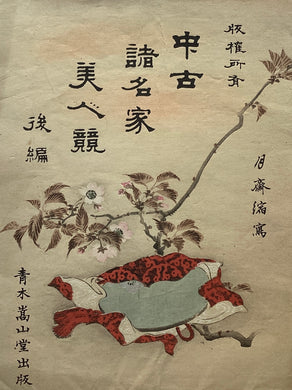 版権所有
中古
諸名家
美人競
後編
月斎縮写
青木嵩山堂出版